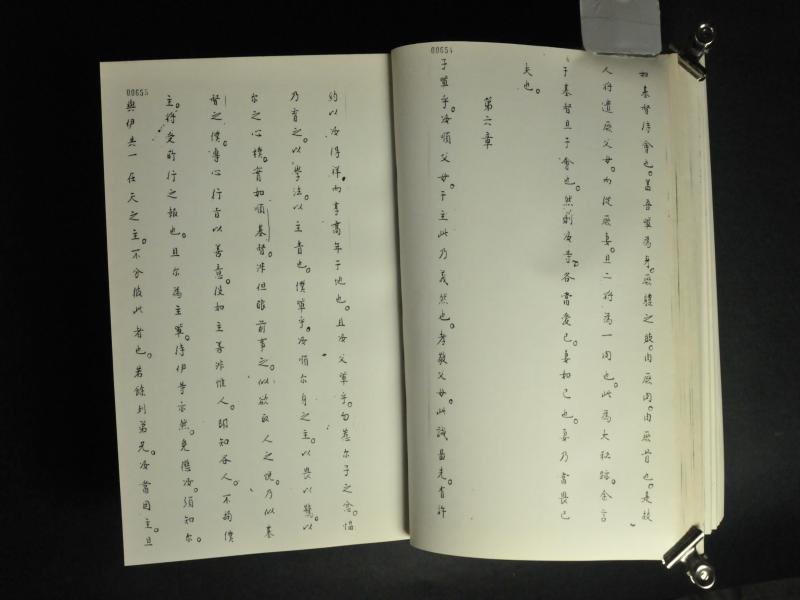 00654
如基督待會也。蓋吾輩為身。厥體之肢。由厥肉。由厥骨也。是故
人將遺厥父母。而從厥妻。且二將為一肉也。此為大秘跡。余言
于基督且于會也。然則汝等。各當愛己。妻如己也。妻乃當畏己
夫也。
第六章
子輩乎。汝順父母。于主此乃義然也。孝敬父母。此誡最先有許
00655
約以汝得祥。而享高年于地也。且汝父輩乎。勿惹尔子之忿。惱
乃育之。以學法。以主音也。僕輩乎。汝順尔身之主。以畏以驚。以
尔之心樸。實如順基督。非但眼前事之。似欲取人之悅。乃似基
督之僕。專心行旨以善意。役如主善非惟人。即知各人。不拘僕
主。將受所行之報也。且尔為主輩。待伊等亦然。免懲汝。須知尔。
與伊共一在天之主。不分彼此者也。若餘列弟兄。汝當因主。且